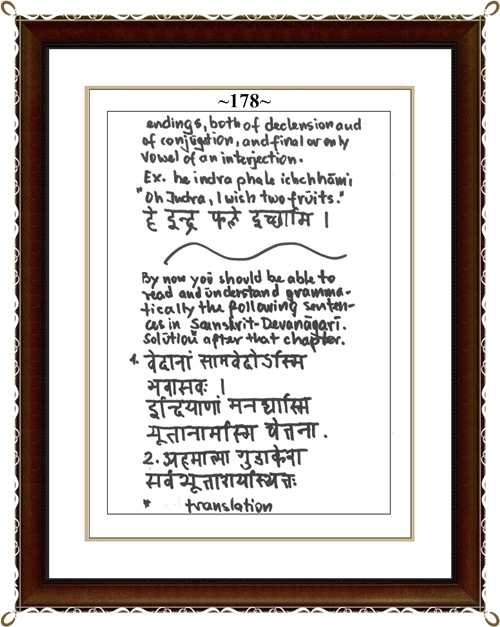 ~178~
endings, both of declension and
of conjugation, and final or only
vowel of an interjection.
Ex. he indra phale ichchhāmi,
"Oh Indra, I wish two fruits."
हे इन्द्र फले इच्छामि ।
By now you should be able to
read and understand gramma-
tically the following senten-
ces in Samskrit-Devanāgarī.
Solution after that chapter.
1. वेदानां सामवेदोऽस्मि
। 
इन्द्रियाणां मनश्चास्मि
भूतानामस्मि चेतना .
2. अहमात्मा गुडाकेश
* translation